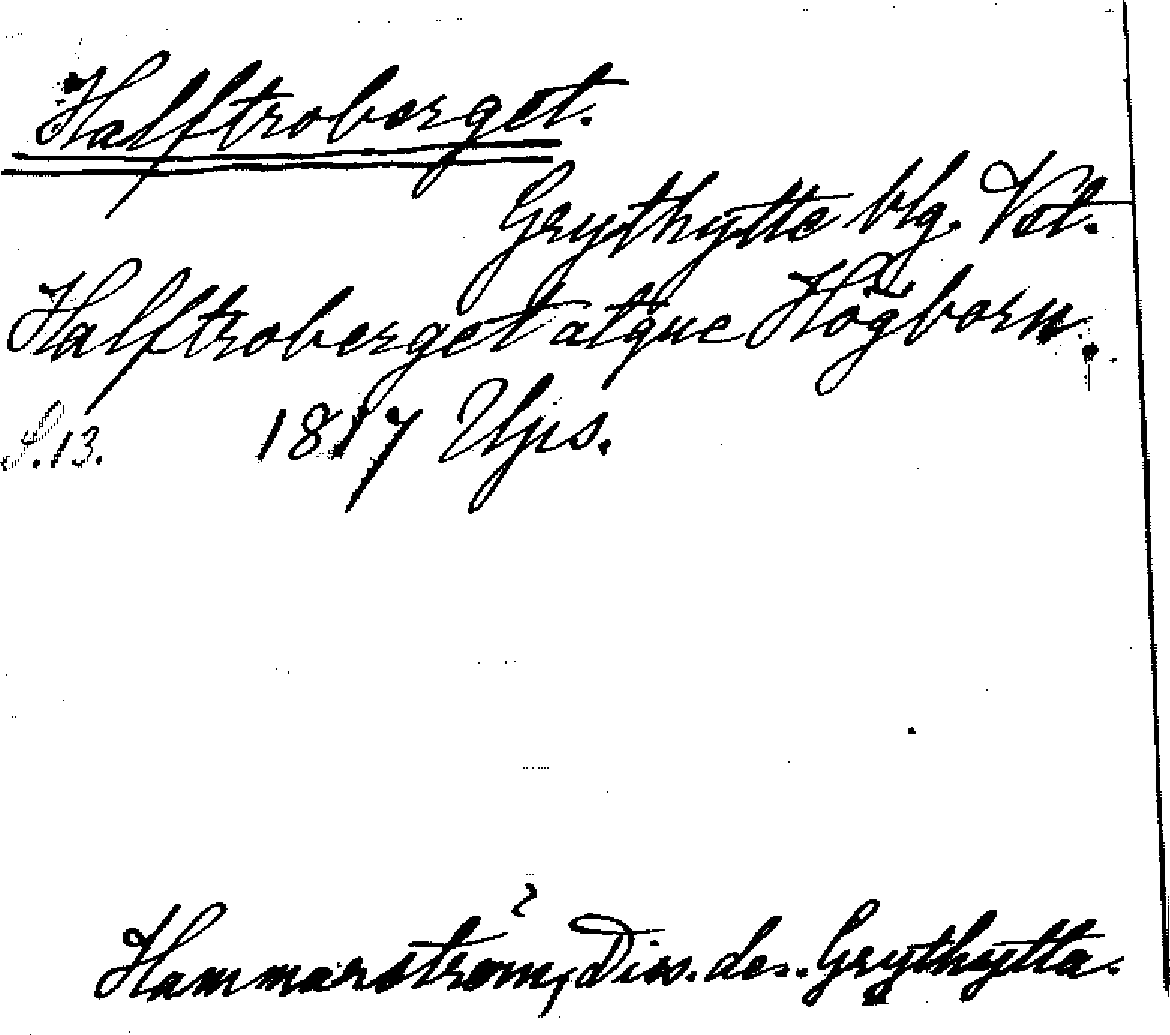 Halftroberget.
Grythytte blg. Vstl.
Halftroberget atque Högborn.
S. 13. 1817 Ups.
Hammarström, Diss. de. Grythytta.